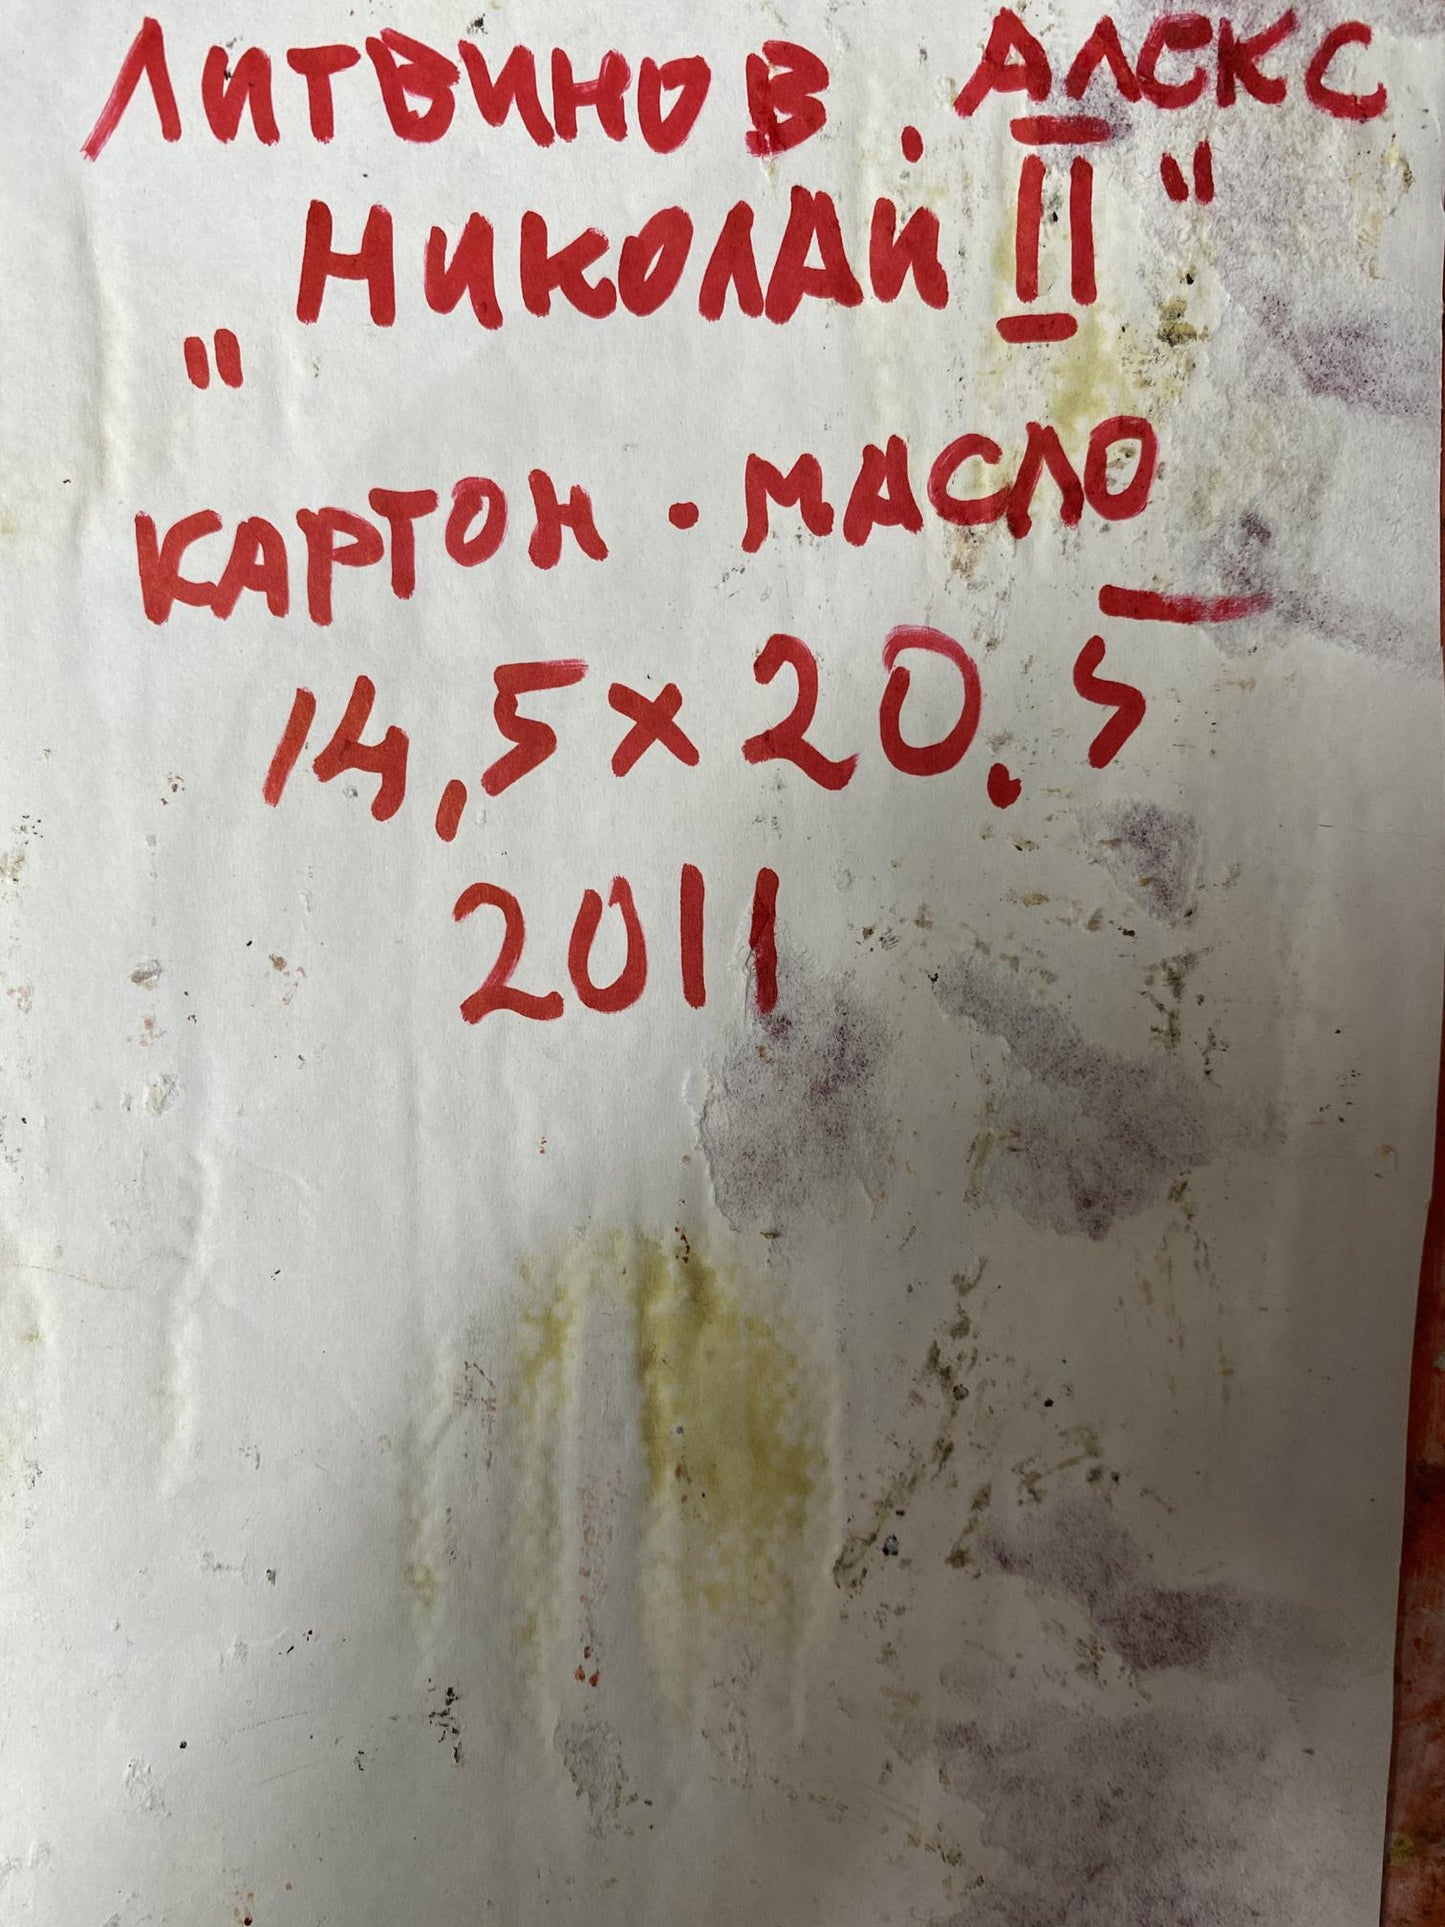 ЛИТВИНОВ. АЛЕКС
"НИКОЛАИ II"
КАРТОН . МАСЛО
14,5 x 20.5
2011